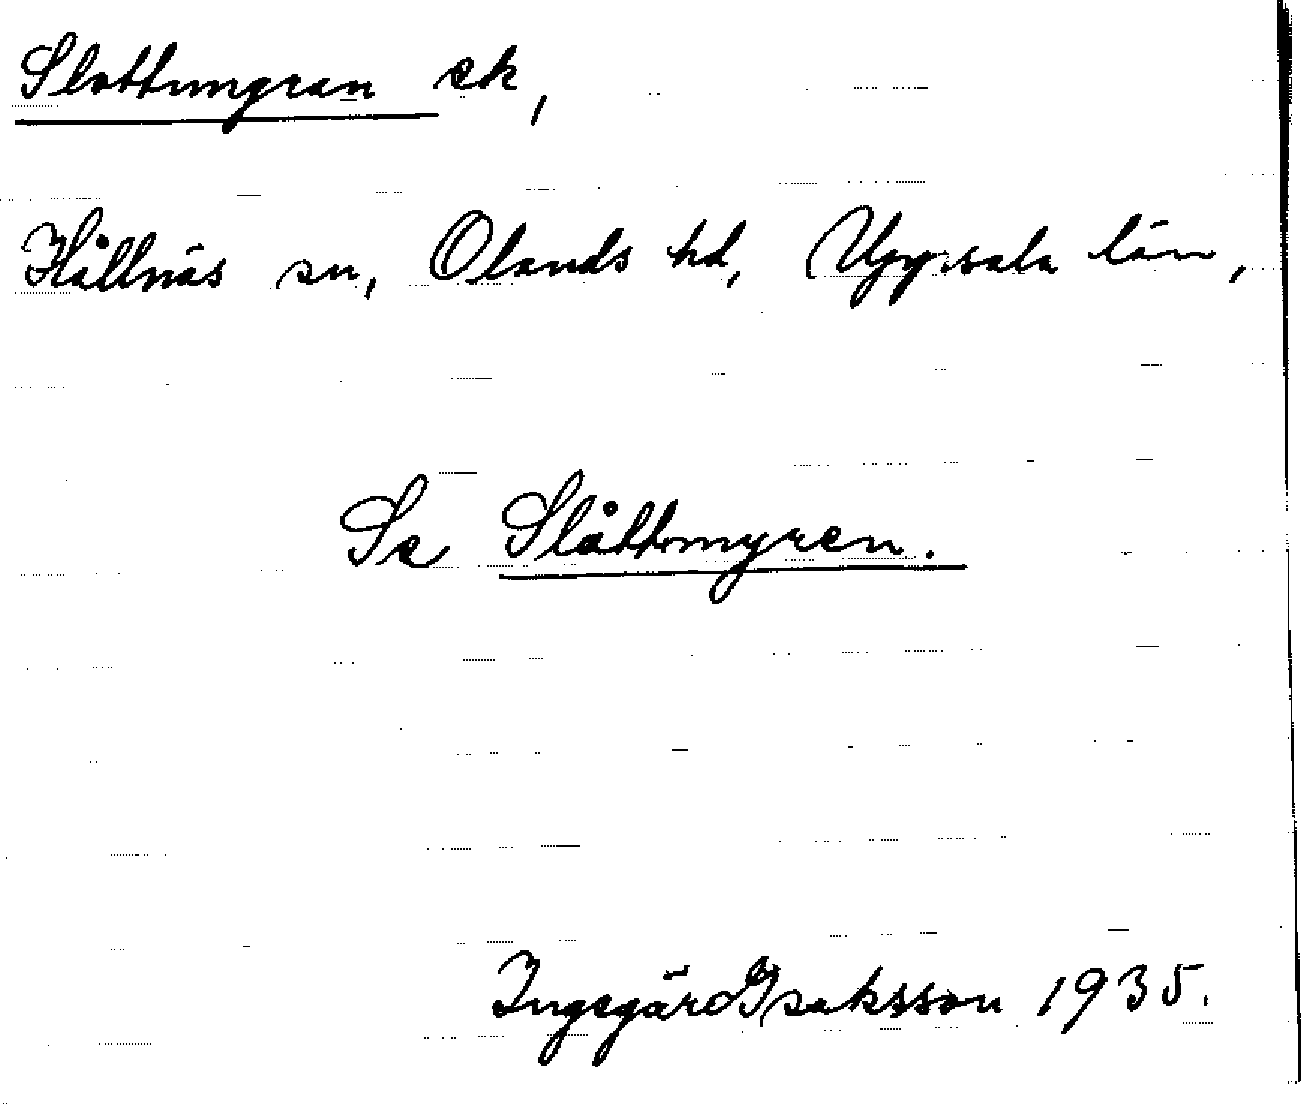 Slottungran ek,
Hållnäs sn, Olands hd, Uppsala län,
Se Slåttmyren.
Ingegärd Isaksson 1935.